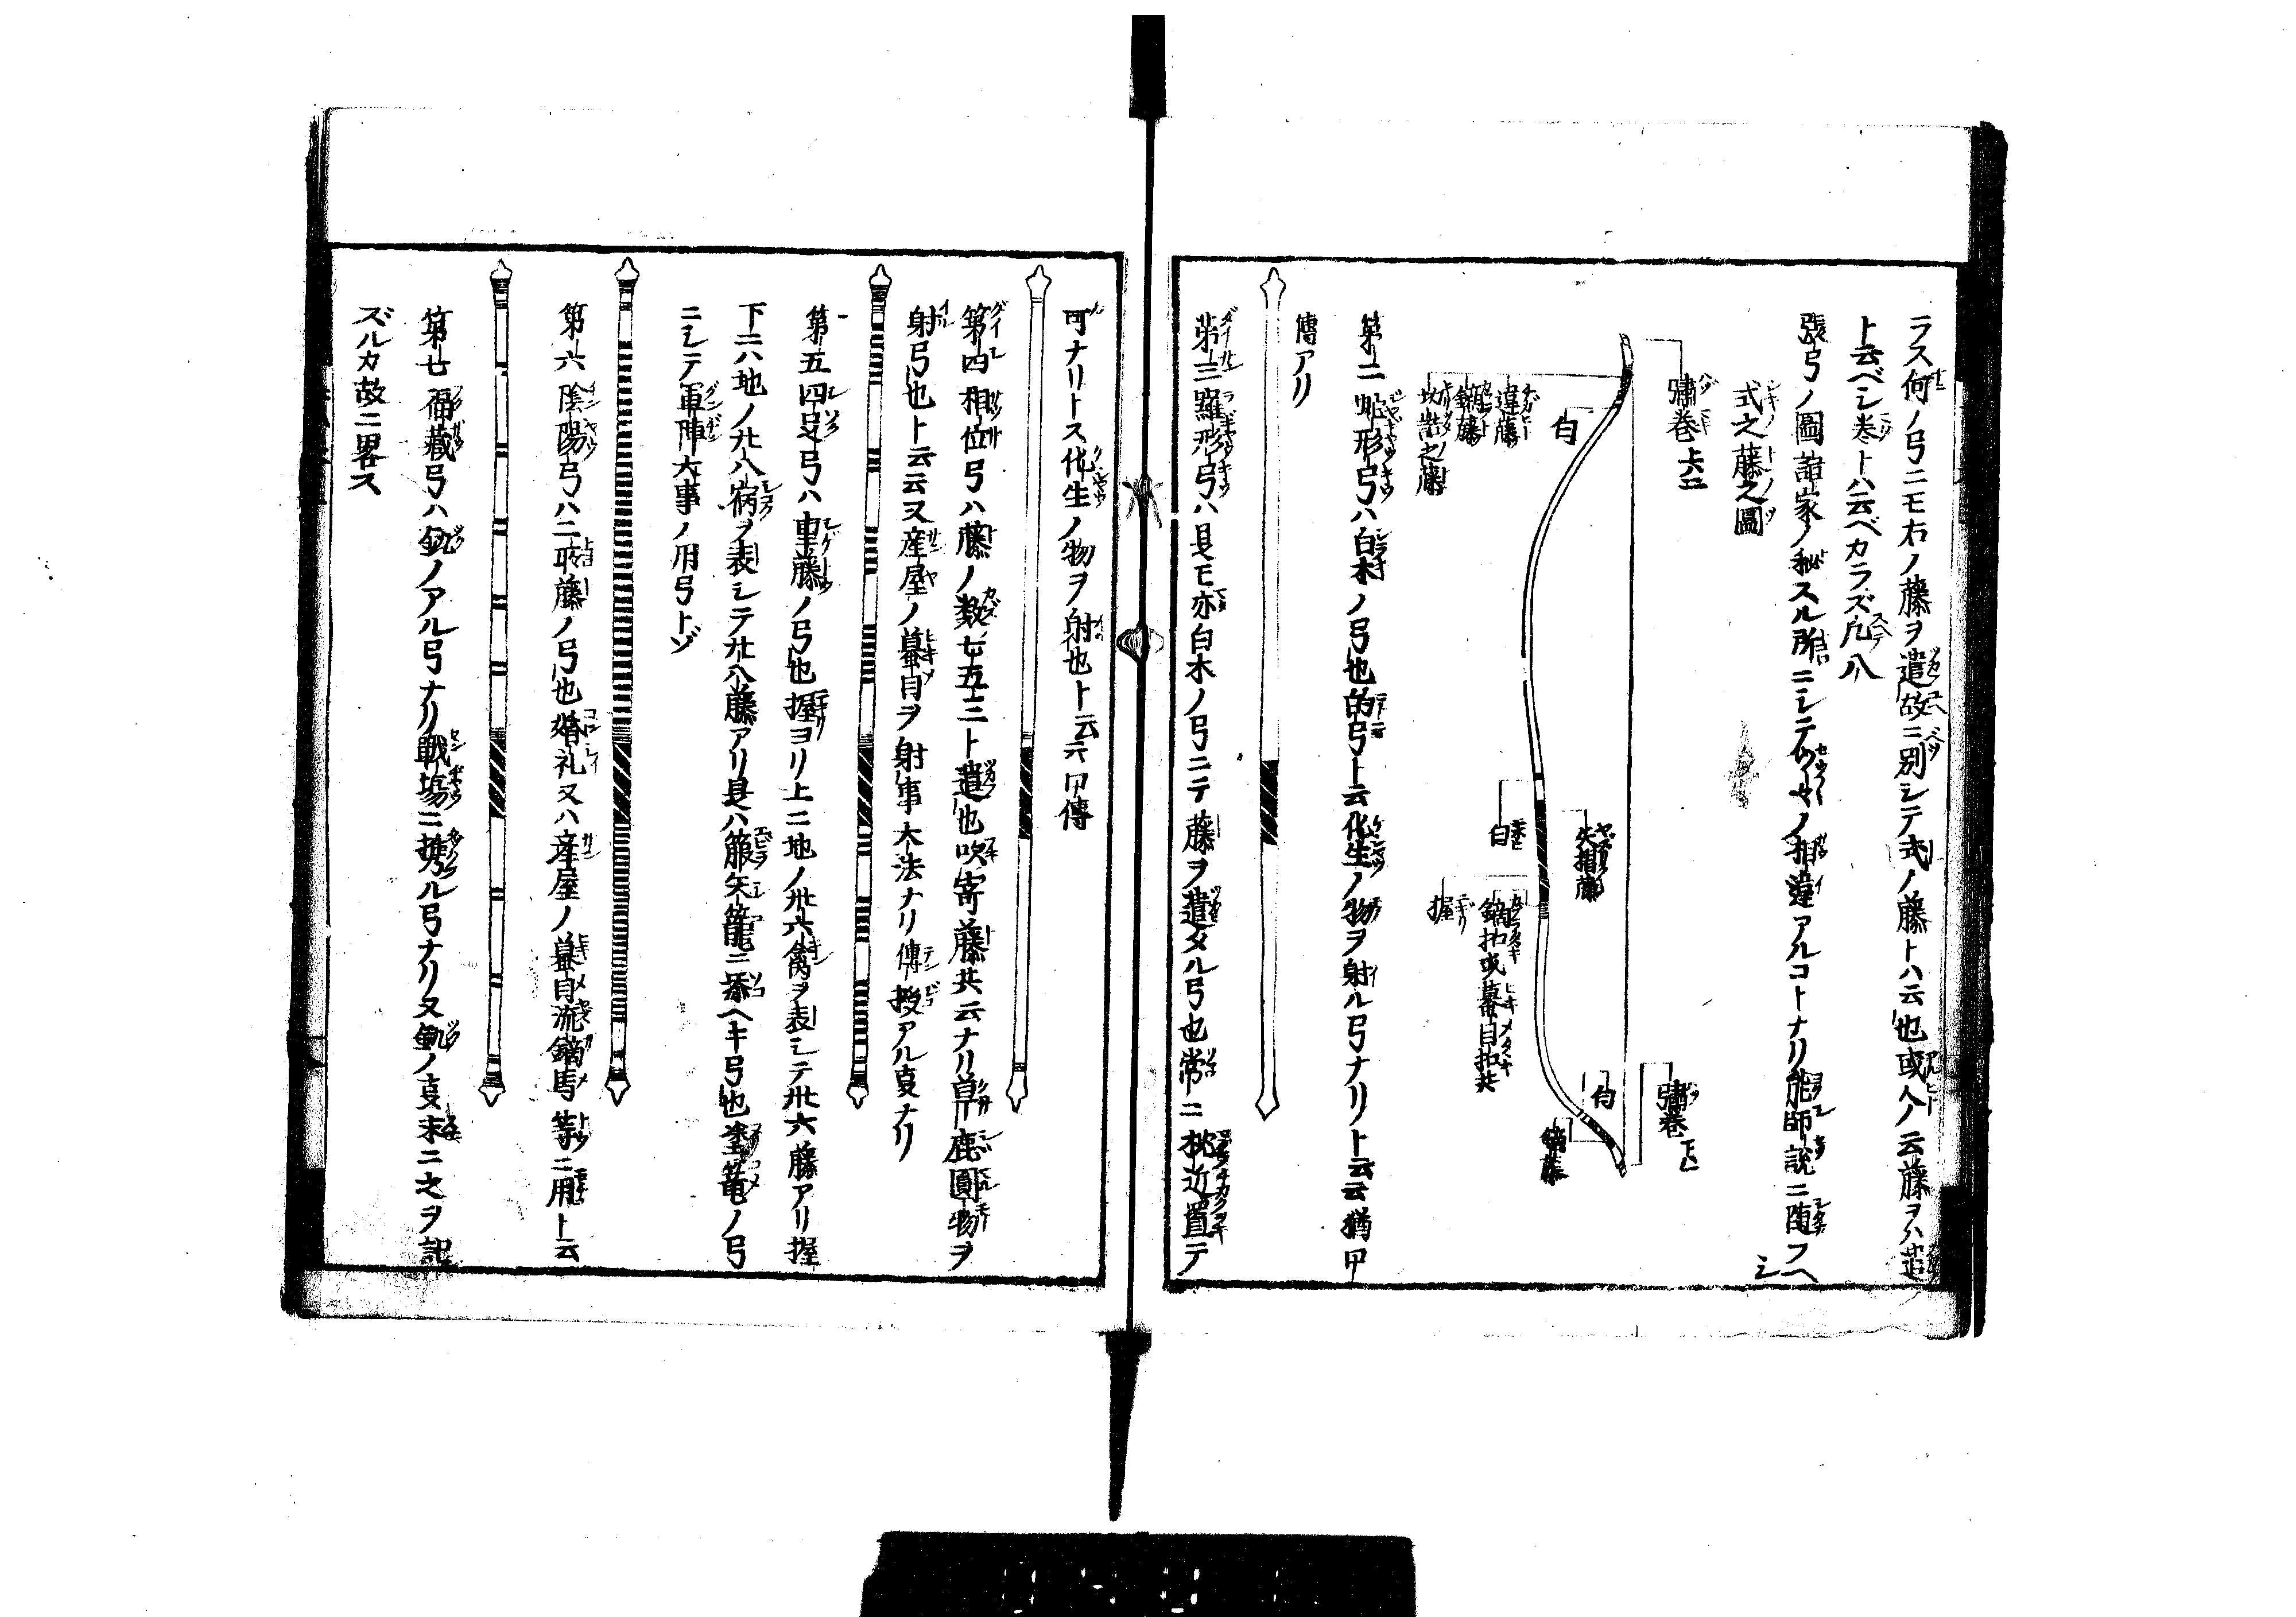 ラス何ノ弓ニモ右ノ藤ヲ遣故ニ別シテ式ノ藤トハ云也或人ノ云藤ヲハ遣
ト云ベシ巻トハ云ベカラズ凡八
張弓ノ圖諸家ノ秘スル所ニシテ少々ノ相違アルコトナリ能師説ニ随フヘシ
式之藤之圖
弭巻 上六二
白
違藤
鏑藤
切詰之藤
矢摺藤
白
握
弭巻
白
鏑藤
第二 虵形弓ハ白木ノ弓也的弓ト云化生ノ物ヲ射ル弓ナリト云云猶口
傳アリ
第三羅形弓ハ是モ亦白木ノ弓ニテ藤ヲ遣タル弓也常ニ枕近置テ
可ナリトス化生ノ物ヲ射也ト云云口傳
第四相位弓ハ藤ノ数七五三ト遣也吹寄藤共云ナリ草鹿圓物ヲ
射弓也ト云云又産屋ノ蟇目ヲ射事大法ナリ傳授アル㕝ナリ
第五四足弓ハ重藤ノ弓也握ヨリ上ニ地ノ卅六禽ヲ表シテ卅六藤アリ握
下ニハ地ノ廿八宿ヲ表シテ廿八藤アリ是ハ箙矢籠ニ添ヘキ弓也塗籠ノ弓
ニシテ軍陣大事ノ用弓トゾ
第六陰陽弓ハ二所藤ノ弓也婚礼又ハ産屋ノ蟇目流鏑馬等ニ用ト云
第七福蔵弓ハ ノアル弓ナリ戦場ニ携ル弓ナリ又 ノ㕝末ニ之ヲ記
ズルカ故ニ畧ス